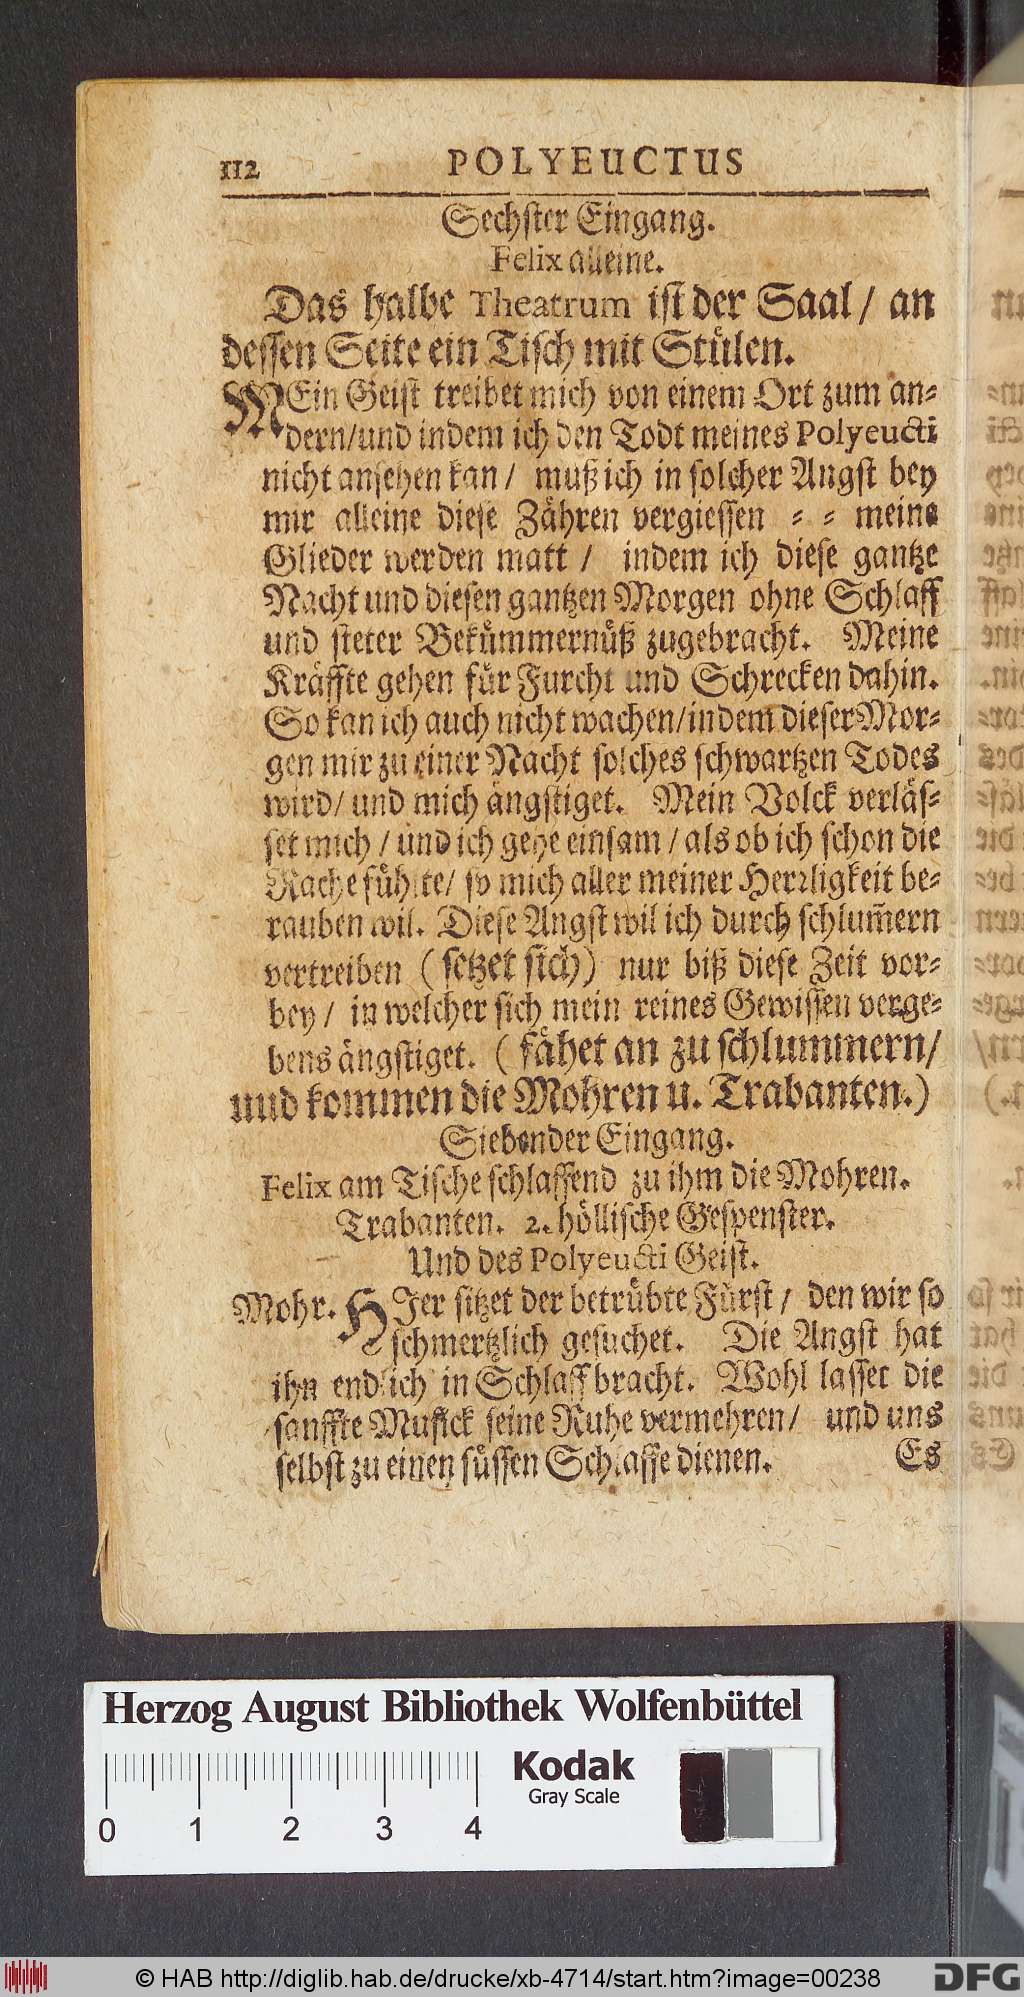 112 POLYEUCTUS
Sechster Eingang.
Felix alleine.
Das halbe Theatrum ist der Saal / an
dessen Seite ein Tisch mit Stülen.
MEin Geist treibet mich von einem Ort zum an⸗
dern/und indem ich den Todt meines Polyeucti
nicht ansehen kan / muß ich in solcher Angst bey
mir alleine diese Zähren vergiessen ⸗ ⸗ meine
Glieder werden matt / indem ich diese gantze
Nacht und diesen gantzen Morgen ohne Schlaff
und steter Bekümmernüß zugebracht. Meine
Kräffte gehen für Furcht und Schrecken dahin.
So kan ich auch nicht wachen/indem dieser Mor⸗
gen mir zu einer Nacht solches schwartzen Todes
wird/ und mich ängstiget. Mein Volck verläs⸗
set mich / und ich gehe einsam / als ob ich schon die
Rache fühlte/ so mich aller meiner Herꝛligkeit be⸗
rauben wil. Diese Angst wil ich durch schlum̃ern
vertreiben (setzet sich) nur biß diese Zeit vor⸗
bey / in welcher sich mein reines Gewissen verge⸗
bens ängstiget. (fähet an zu schlummern/
und kommen die Mohren u. Trabanten.)
Siebender Eingang.
Felix am Tische schlaffend zu ihm die Mohren.
Trabanten. 2. höllische Gespenster.
Und des Polyeucti Geist.
Mohr. HJer sitzet der betrübte Fürst / den wir so
schmertzlich gesuchet. Die Angst hat
ihn endlich in Schlaff bracht. Wohl lasset die
sanffte Musick seine Ruhe vermehren / und uns
selbst zu einen süssen Schlaffe dienen. Es
Herzog August Bibliothek Wolfenbüttel
0 1 2 3 4
Kodak
Gray Scale
© HAB http://diglib.hab.de/drucke/xb-4714/start.htm?image=00238
DFG